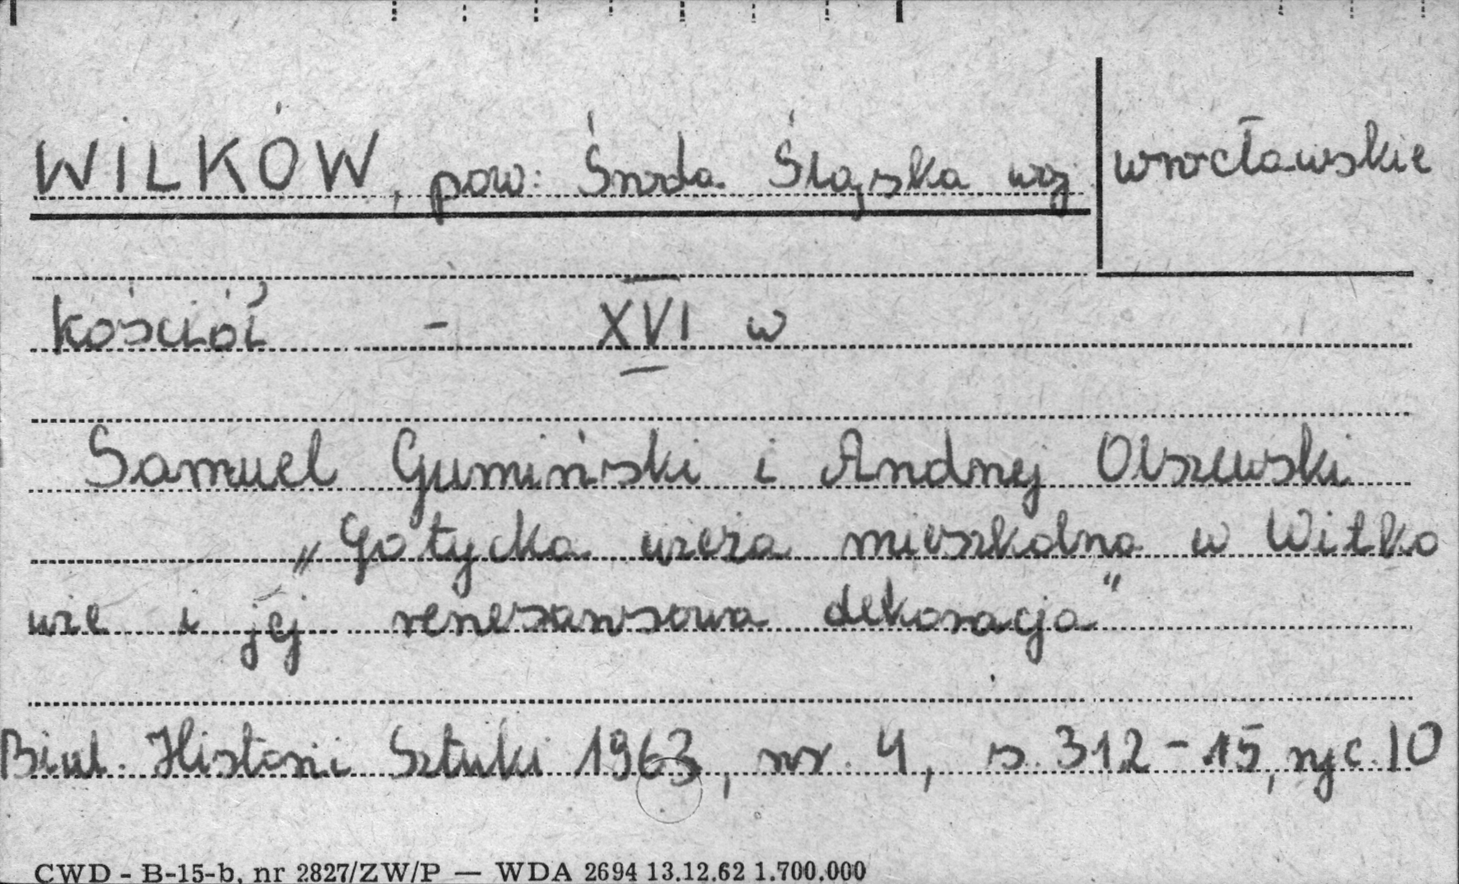 WILKÓW, pow: Środa Śląska woj wrocławskie
kościół - XVI w
Samuel Gumiński i Andrzej Olszewski
„Gotycka wieża mieszkalna w Wilko
wie i jej renesansowa dekoracja"
Biul. Historii Sztuki 1963, nr. 4, s. 312-15, ryc. 10
CWD - B-15-b, nr 2827/ZW/P — WDA 2694 13.12.62 1.700.000